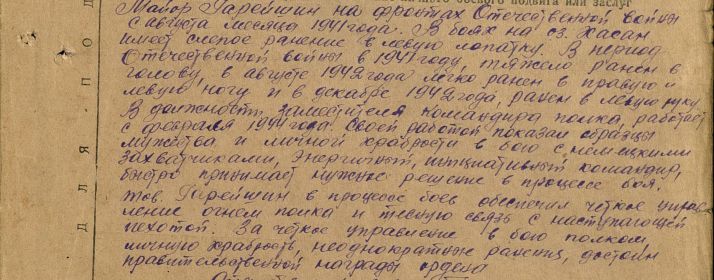 боевого подвига или заслуг
Майор Гарейшин на фронтах Отечественной войны
с августа месяца 1941 года. В боях на оз. Хасан
имеет слепое ранение в левую лопатку. В период
Отечественной войны в 1941 году, тяжело ранен в
голову, в августе 1942 года легко ранен в правую и
левую ногу и в декабре 1942 года, ранен в левую руку.
В должности заместителя командира полка, работает
с февраля 1944 года. Своей работой показал образцы
мужества и личной храбрости в бою с немецкими
захватчиками, энергичный, инициативный командир,
быстро принимает нужное решение в процессе боя.
тов. Гарейшин в процессе боев обеспечил чёткое управ-
ление огнем полка и тесную связь с наступающей
пехотой. За чёткое управление в бою полком
личную храбрость, неоднократные ранения, достоин
правительственной награды ордена
Д Л Я П О Д